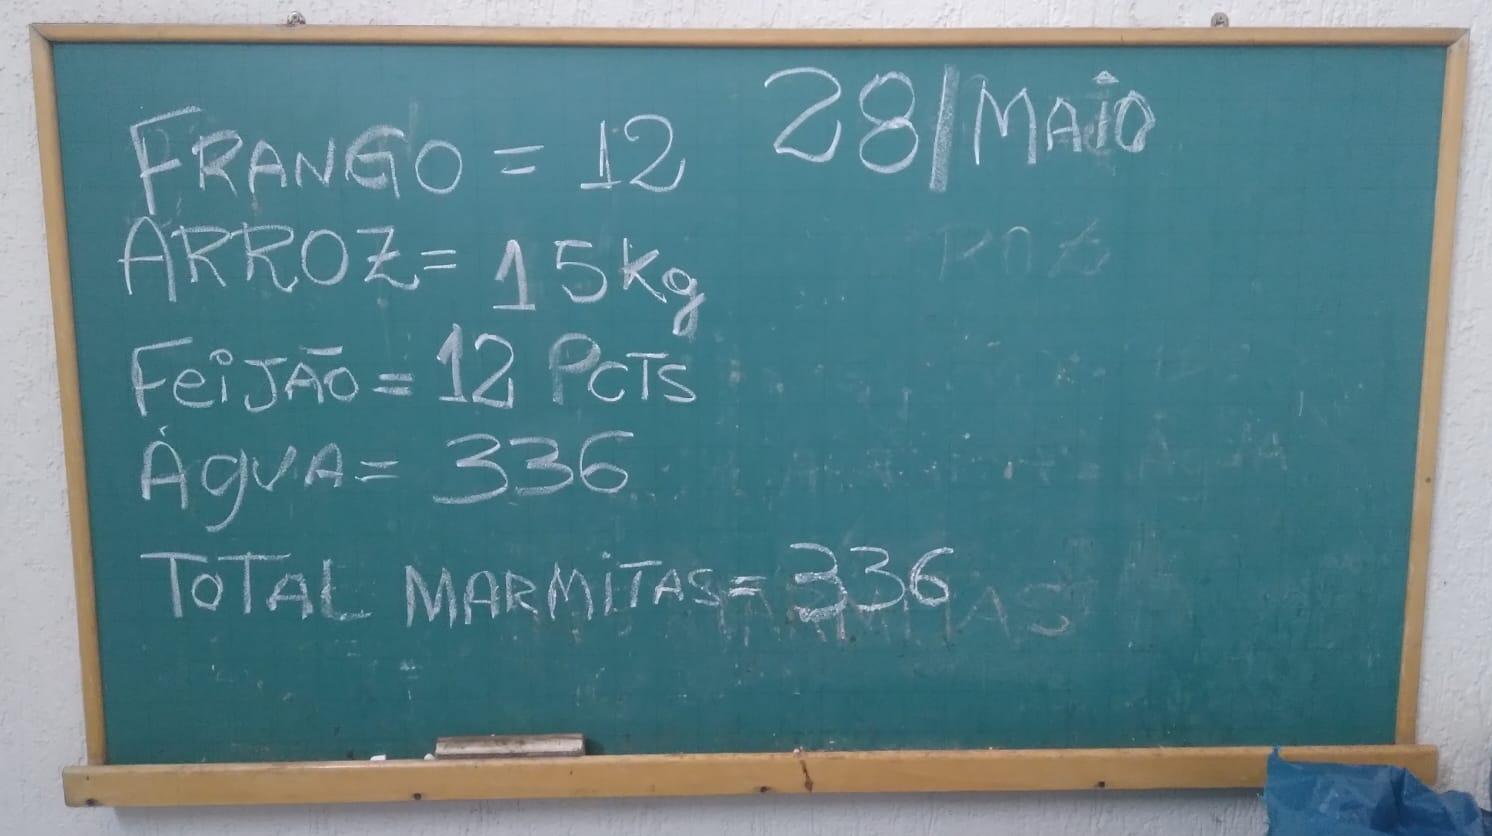 28/MAIO
FRANGO = 12
ARROZ = 15kg
FeiJÃO = 12 PCTS
ÁgUA = 336
TOTAL MARMITAS = 336
MARMITAS